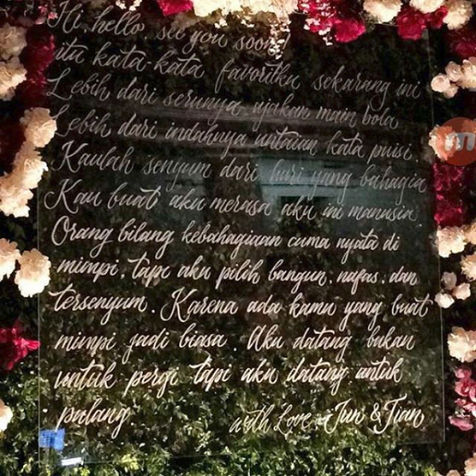 Hi, hello, see you soon!
itu kata-kata favoritku sekarang ini
Lebih dari serunya ajakan main bola
Lebih dari indahnya untaian kata puisi.
Kaulah senyum dari hari yang bahagia
Kau buat aku merasa aku ini manusia
Orang bilang kebahagiaan cuma nyata di
mimpi, tapi aku pilih bangun, nafas, dan
tersenyum. Karena ada kamu yang buat
mimpi jadi biasa. Aku datang bukan
untuk pergi tapi aku datang untuk
pulang.
with Love, Jun & Tian